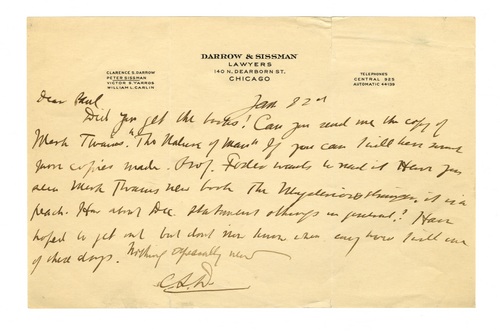 DARROW & SISSMAN
LAWYERS
140 N. DEARBORN ST.
CHICAGO
CLARENCE S. DARROW
PETER SISSMAN
VICTOR S. YARROS
WILLIAM L. CARLIN
TELEPHONES
CENTRAL 925
AUTOMATIC 44159
Jan 22nd
Dear Paul,
Did you get the books? Can you send me the copy of
Mark Twain's "The Nature of Man" If you can I will have some
more copies made. Prof. Foster wants to read it Have you
seen Mark Twains new book The Mysterious Stranger. it is a
peach. How about Dec. statement & things in general? Have
hoped to get out but dont know when any how I will one
of these days. Nothing especially new
C.S.D.